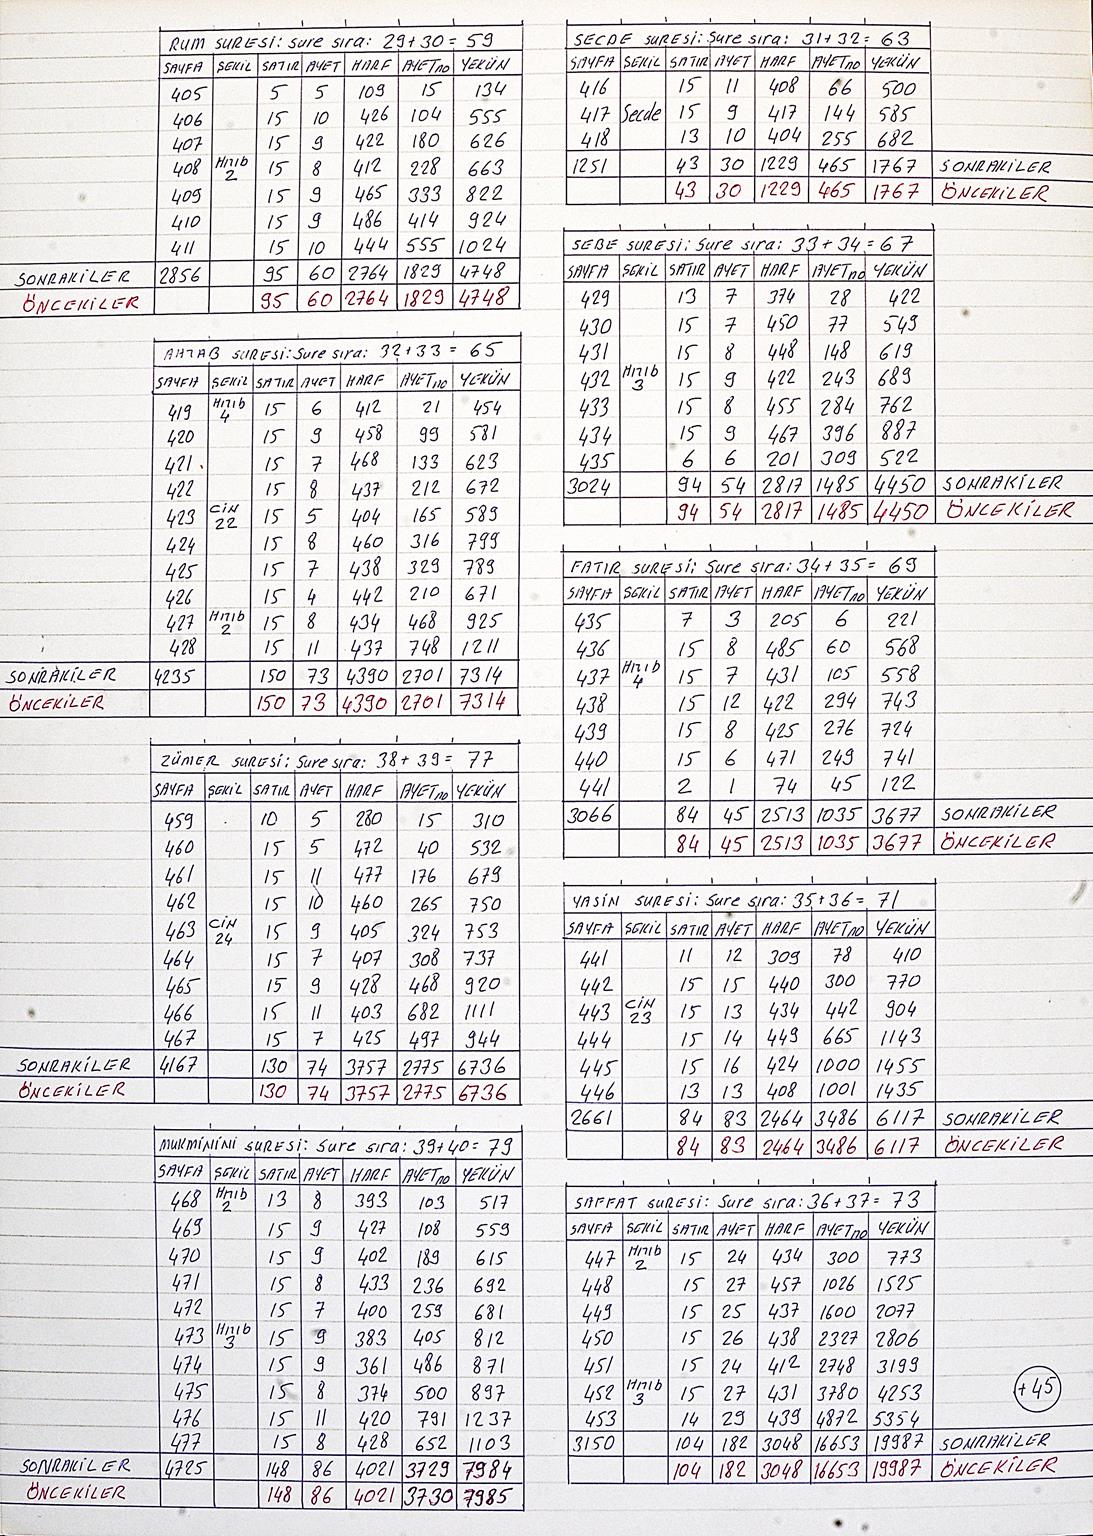 RUM SURESİ: Sure sıra: 29+30= 59
SAYFA ŞEKİL SATIR AYET HARF AYET no YEKÜN
405 5 5 109 15 134
406 15 10 426 104 555
407 15 9 422 180 626
408 Hızıb 2 15 8 412 228 663
409 15 9 465 333 822
410 15 9 486 414 924
411 15 10 444 555 1024
SONRAKİLER 2856 95 60 2764 1829 4748
ÖNCEKİLER 95 60 2764 1829 4748
AHZAB SURESİ: Sure sıra: 32+33 = 65
SAYFA ŞEKİL SATIR AYET HARF AYET no YEKÜN
419 Hızıb 4 15 6 412 21 454
420 15 9 458 99 581
421 15 7 468 133 623
422 15 8 437 212 672
423 CİN 22 15 5 404 165 589
424 15 8 460 316 799
425 15 7 438 329 789
426 15 4 442 210 671
427 Hızıb 2 15 8 434 468 925
428 15 11 437 748 1211
SONRAKİLER 4235 150 73 4390 2701 7314
ÖNCEKİLER 150 73 4390 2701 7314
ZÜMER SURESİ: Sure sıra: 38+39= 77
SAYFA ŞEKİL SATIR AYET HARF AYET no YEKÜN
459 10 5 280 15 310
460 15 5 472 40 532
461 15 11 477 176 679
462 15 10 460 265 750
463 CİN 24 15 9 405 324 753
464 15 7 407 308 737
465 15 9 428 468 920
466 15 11 403 682 1111
467 15 7 425 497 944
SONRAKİLER 4167 130 74 3757 2775 6736
ÖNCEKİLER 130 74 3757 2775 6736
MUKMİNİNİ SURESİ: Sure sıra: 39+40= 79
SAYFA ŞEKİL SATIR AYET HARF AYET no YEKÜN
468 Hızıb 2 13 8 393 103 517
469 15 9 427 108 559
470 15 9 402 189 615
471 15 8 433 236 692
472 15 7 400 259 681
473 Hızıb 3 15 9 383 405 812
474 15 9 361 486 871
475 15 8 374 500 897
476 15 11 420 791 1237
477 15 8 428 652 1103
SONRAKİLER 4725 148 86 4021 3729 7984
ÖNCEKİLER 148 86 4021 3730 7985
SECDE SURESİ: Sure sıra: 31+32= 63
SAYFA ŞEKİL SATIR AYET HARF AYET no YEKÜN
416 15 11 408 66 500
417 Secde 15 9 417 144 585
418 13 10 404 255 682
1251 43 30 1229 465 1767 SONRAKİLER
43 30 1229 465 1767 ÖNCEKİLER
SEBE SURESİ: Sure sıra: 33+34= 67
SAYFA ŞEKİL SATIR AYET HARF AYET no YEKÜN
429 13 7 374 28 422
430 15 7 450 77 549
431 15 8 448 148 619
432 Hızıb 3 15 9 422 243 689
433 15 8 455 284 762
434 15 9 467 396 887
435 6 6 201 309 522
3024 94 54 2817 1485 4450 SONRAKİLER
94 54 2817 1485 4450 ÖNCEKİLER
FATIR SURESİ: Sure sıra: 34+35= 69
SAYFA ŞEKİL SATIR AYET HARF AYET no YEKÜN
435 7 3 205 6 221
436 15 8 485 60 568
437 Hızıb 4 15 7 431 105 558
438 15 12 422 294 743
439 15 8 425 276 724
440 15 6 471 249 741
441 2 1 74 45 122
3066 84 45 2513 1035 3677 SONRAKİLER
84 45 2513 1035 3677 ÖNCEKİLER
YASİN SURESİ: Sure sıra: 35+36= 71
SAYFA ŞEKİL SATIR AYET HARF AYET no YEKÜN
441 11 12 309 78 410
442 15 15 440 300 770
443 CİN 23 15 13 434 442 904
444 15 14 449 665 1143
445 15 16 424 1000 1455
446 13 13 408 1001 1435
2661 84 83 2464 3486 6117 SONRAKİLER
84 83 2464 3486 6117 ÖNCEKİLER
SAFFAT SURESİ: Sure sıra: 36+37= 73
SAYFA ŞEKİL SATIR AYET HARF AYET no YEKÜN
447 Hızıb 2 15 24 434 300 773
448 15 27 457 1026 1525
449 15 25 437 1600 2077
450 15 26 438 2327 2806
451 15 24 412 2748 3199
452 Hızıb 3 15 27 431 3780 4253
453 14 29 439 4872 5354
3150 104 182 3048 16653 19987 SONRAKİLER
104 182 3048 16653 19987 ÖNCEKİLER
+45